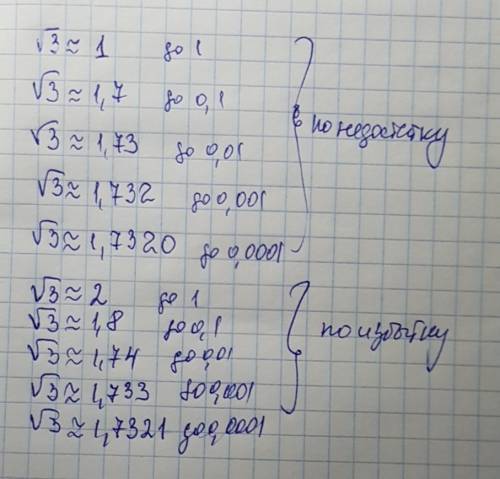 √3 ≈ 1 до 1
√3 ≈ 1,7 до 0,1
√3 ≈ 1,73 до 0,01
√3 ≈ 1,732 до 0,001
√3 ≈ 1,7320 до 0,0001
по недостатку
√3 ≈ 2 до 1
√3 ≈ 1,8 до 0,1
√3 ≈ 1,74 до 0,01
√3 ≈ 1,733 до 0,001
√3 ≈ 1,7321 до 0,0001
по избытку